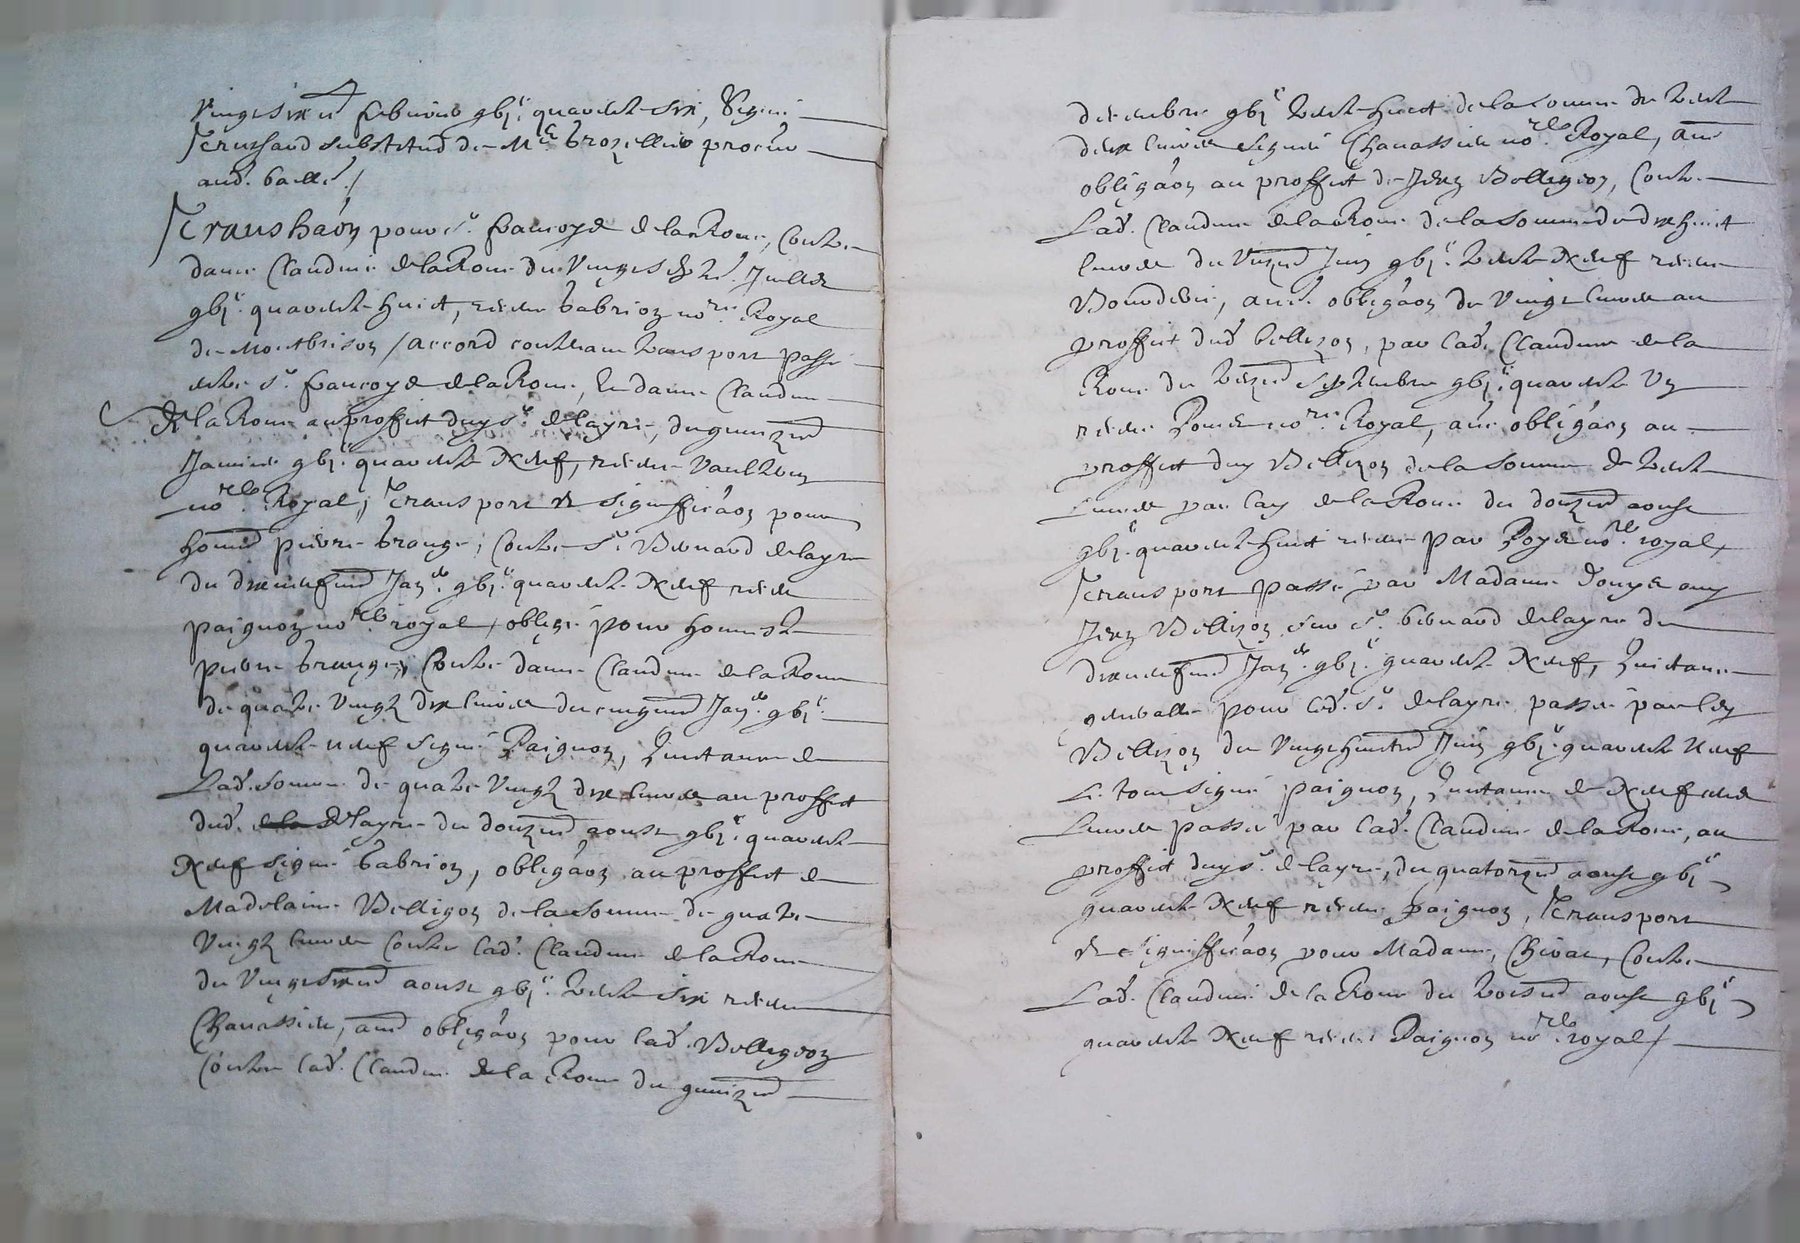 vingtsixe febvrier gbjc quarente six, Signé
Terrichard substitud de Me brozellier procur
aud. baille./
Transhaon pour sr. francoys de la Roue, contre
dame Claudine de la Roue du vingt sept Juillet
gbjc. quarente huict, receue babrion nore. Royal
de Montbrison / accord contenant transport passé
entre sr. francoys de la Roue, et dame Claudine
de la Roue au proffict duy sr. delayre, du quinzie
Janvier gbjc. quarente neuf, receue
nore. Royal, Transport et signifficaon pour
honne pierre brange, contre sr. Bernard delayre
du dixneufie Jany. gbjc. quarente neuf receu
paignon nore. royal / obligé pour honneste
pierre brange, contre dame Claudine de la Roue
de quatre vingt dix livres du cinqie Jany. gbjc.
quarente neuf signé Paignon, quittance de
Lad. somme de quatre vingt dix livres au proffict
dud. delayre du douzie aoust gbjc. quarente
neuf signé babrion, obligaon au proffict de
Madelaine Belligon de la somme de quatre
vingt livres contre lad. Claudine de la Roue
du vingtsixie aoust gbjc. trente six receue
Chanassieu, aue obligaon pour lad. Belligeon
contre lad. Claudine de la Roue du quinzie
décembre gbjc trente huict de la somme de trente
deux livres signé Chanassieu nore. Royal, aue
obligaon au proffict de Jean Belligeon, contre
Lad. Claudine de la Roue de la somme de dix huict
livres du unzie Juin gbjc. trente neuf receue
Bourdelin, aue. obligaon de vingt livres au
proffict dud bellizon, par lad. Claudine de la
Roue du treizie septembre gbjc. quarente un
receue nore. Royal, aue obligaon au
proffict duy Bellizon de la somme de trente
livres par lay de la Roue du douzie aoust
gbjc. quarente huict receue par Poyet nore. royal /
Transport passé par Madame auy
Jean Bellizon sur sr. bernard delayre du
dixneufie Jany. gbjc quarente neuf, quittance
generalle pour led. sr. delayre passée par ley
Bellizon du vingthuictie Juin gbjc. quarente neuf
Le tout signé paignon, quittance de neuf
livres passée par lad. Claudine de la Roue, au
proffict duy sr. delayre, du quatorzie aoust gbjc
quarente neuf receue paignon, Transport
et signifficaon pour Madame, Chirat, contre
Lad. Claudine de la Roue du troisie aoust gbjc
quarente neuf receue Paignon nore. royal /